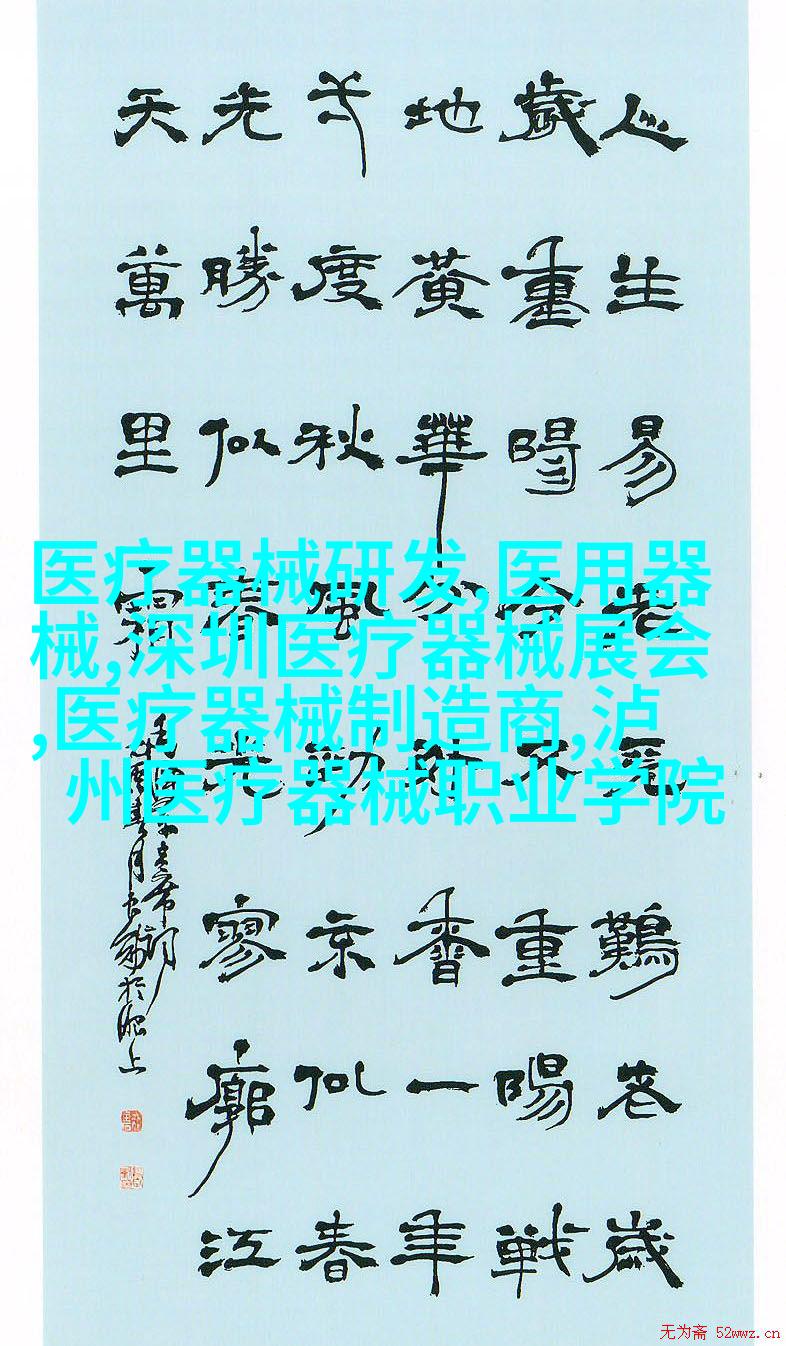 人生易老天難老歲
歲重陽今又重陽戰
地黃華分外香一年
度秋風勁似春
光勝似春光寥廓江
天萬里霜
医疗器械研发,医用器
械,深圳医疗器械展会
,医疗器械制造商,泸
州医疗器械职业学院
无为斋 52wwz.cn